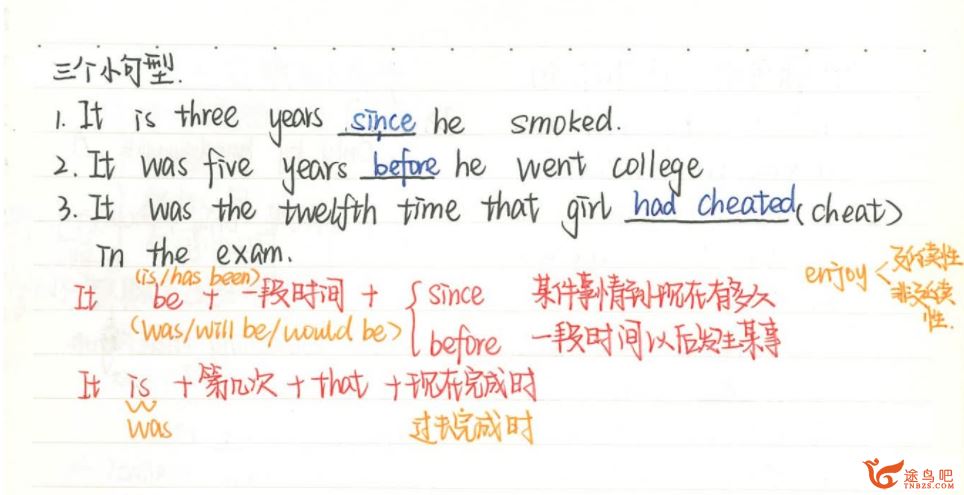 三个小句型.
1. It is three years since he smoked.
2. It was five years before he went college
3. It was the twelfth time that girl had cheated (cheat)
in the exam.
(is/has been)
It be + 一段时间 + { since 某件事情到现在有多久
(was/will be/would be) before 一段时间以后发生某事
enjoy < 延续性
非延续性.
It is + 第几次 + that + 现在完成时
was 过去完成时
途鸟吧
TNBZS.COM